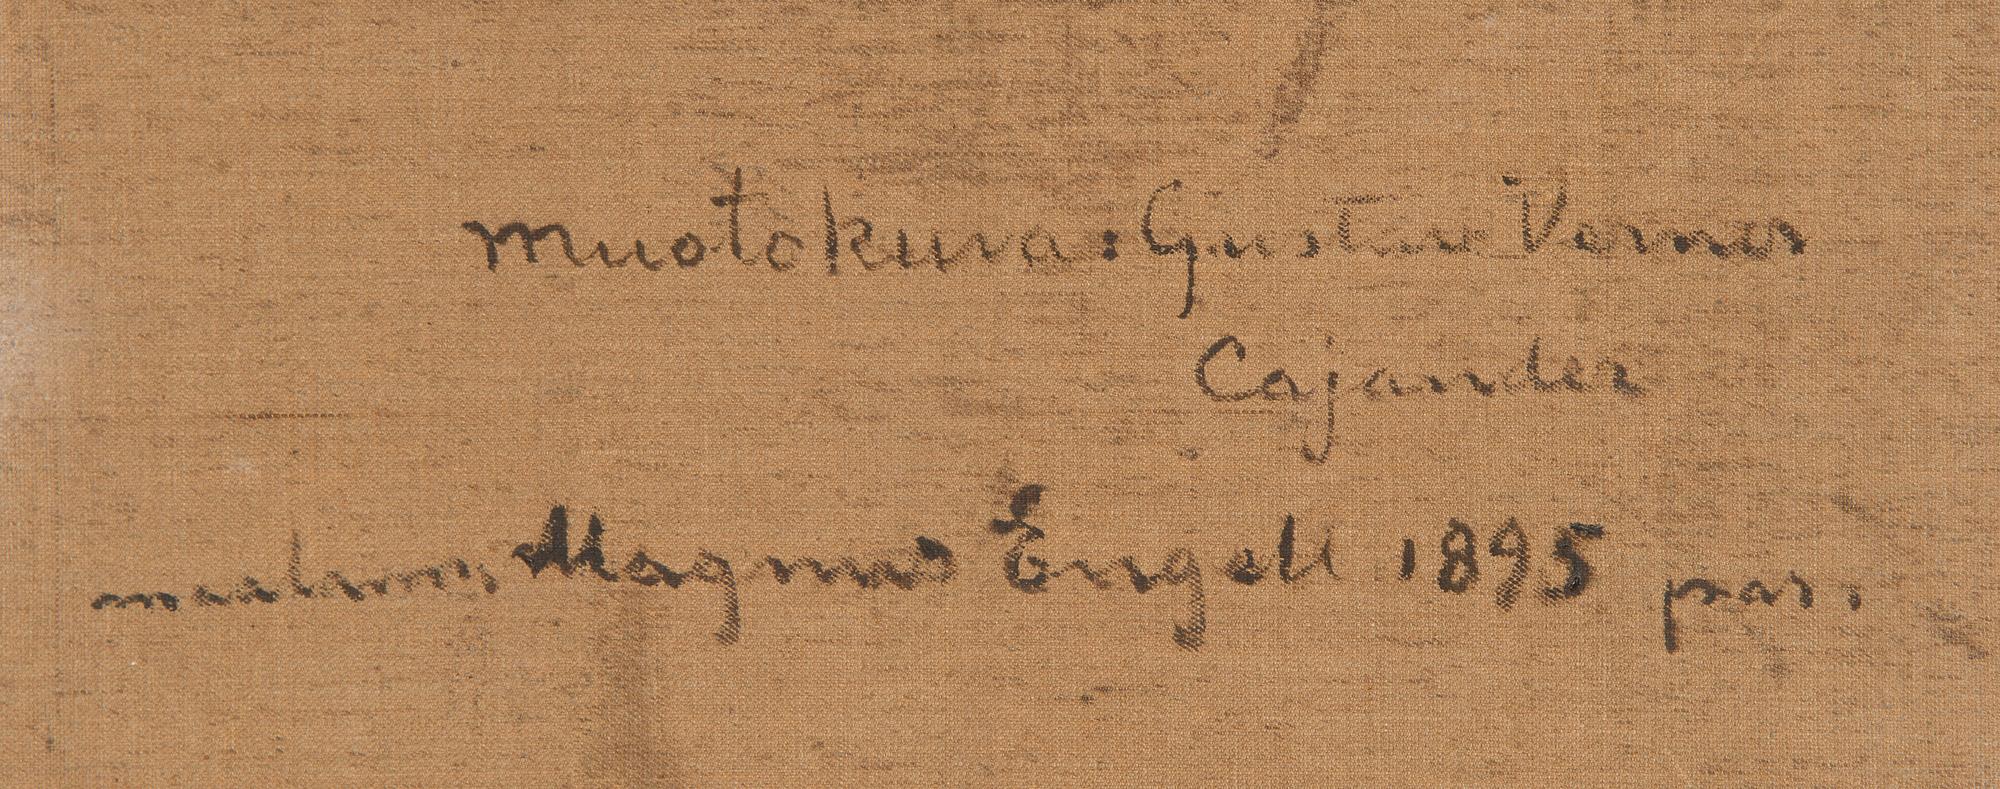 muotokuva: Gustav Verner
Cajander
maalannut Magnus Engell 1895